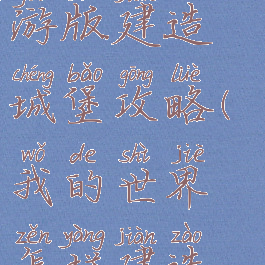 游版建造
chéng bǎo gōng lüè
城堡攻略(
wǒ de shì jiè
我的世界
zěn yàng jiàn zào
怎样建造